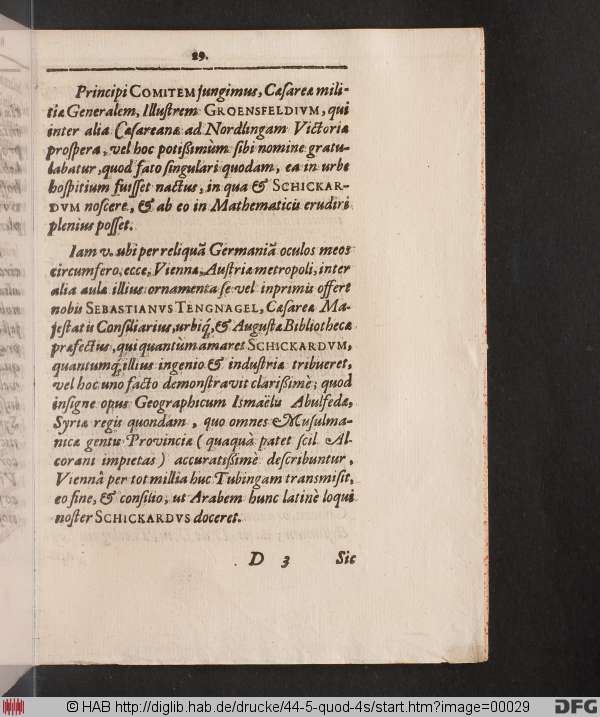 29.
Principi COMITEM jungimus, Cæsareæ mili-
tiæ Generalem, Illustrem GROENSFELDIVM, qui
inter alia Cæsareanæ ad Nordlingam Victoriæ
prospera, vel hoc potißimùm sibi nomine gratu-
labatur, quod fato singulari quodam, ea in urbe
hospitium fuisset nactus, in qua & SCHICKAR-
DVM noscere, & ab eo in Mathematicis erudiri
plenius posset.
Iam v. ubi per reliquã Germaniã oculos meos
circumfero, ecce, Viennæ, Austriæ metropoli, inter
alia aulæ illius ornamenta se vel inprimis offert
nobis SEBASTIANVS TENGNAGEL, Cæsareæ Ma-
jestatis Consiliarius, urbiq́, & Augustæ Bibliothecæ
præfectus, qui quantum amaret SCHICKARDVM,
quantumq́ illius ingenio & industriæ tribueret,
vel hoc uno facto demonstravit clarißimè; quod
insigne opus Geographicum Ismaëlis Abulfedæ,
Syriæ regis quondam, quo omnes Musulma-
nicæ gentis Provinciæ (quaquà patet scil. Al-
corani impietas) accuratißimè describuntur,
Viennâ per tot millia huc Tubingam transmisit,
eo fine, & consilio, ut Arabem hunc latinè loqui
noster SCHICKARDVS doceret.
D 3 Sic
© HAB http://diglib.hab.de/drucke/44-5-quod-4s/start.htm?image=00029
DFG